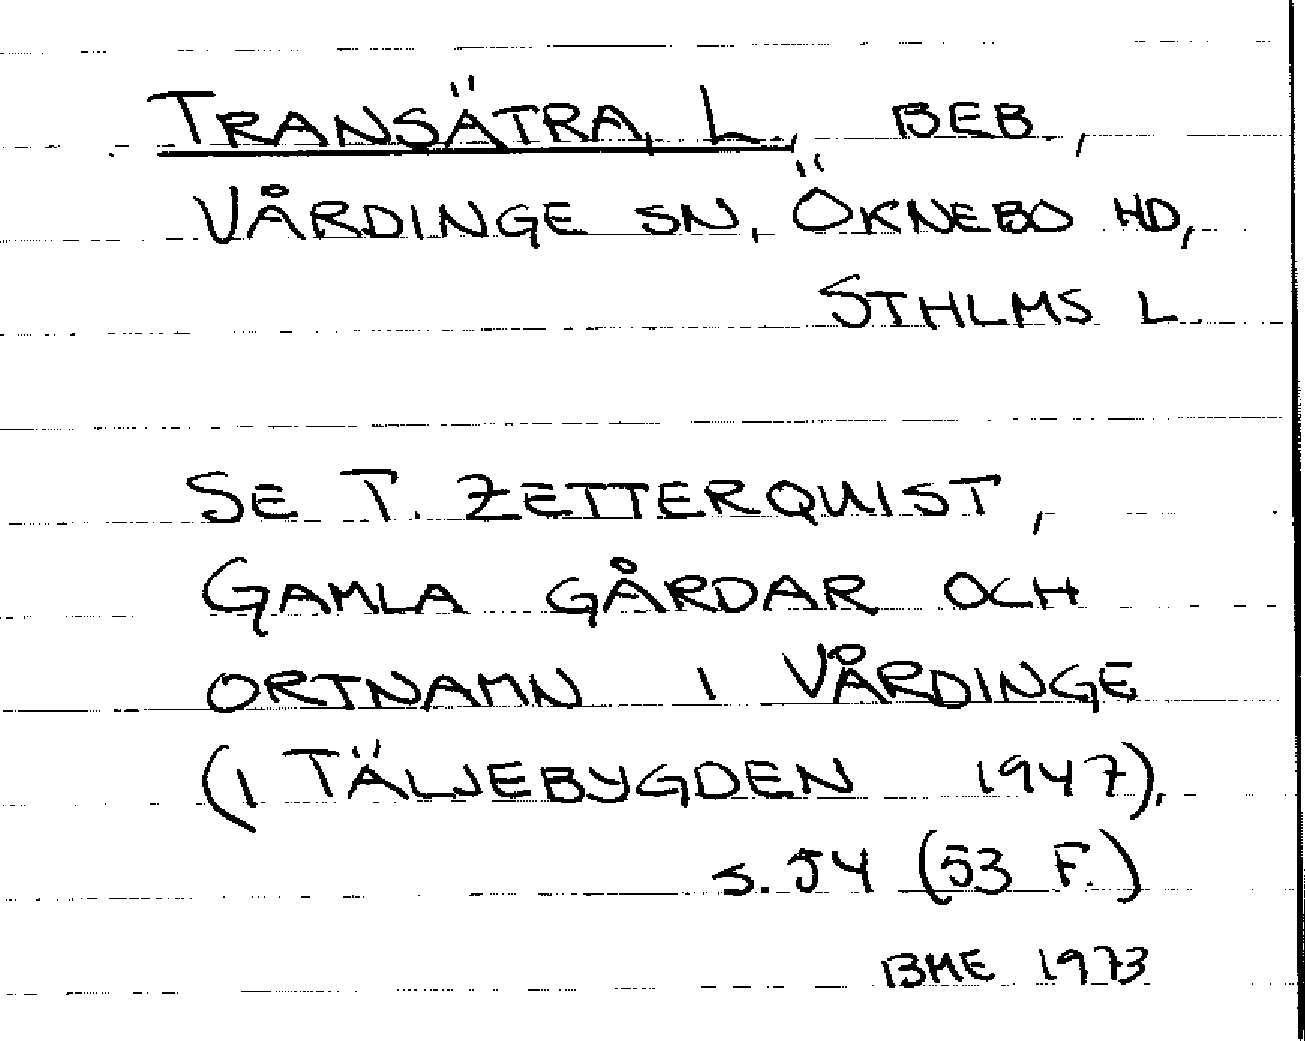 TRANSÄTRA, L., BEB.,
VÅRDINGE SN, ÖKNEBO HD,
STHLMS L.
SE T. ZETTERQUIST,
GAMLA GÅRDAR OCH
ORTNAMN I VÅRDINGE
(I TÄLJEBYGDEN 1947),
S. 54 (53 F.)
BME 1973